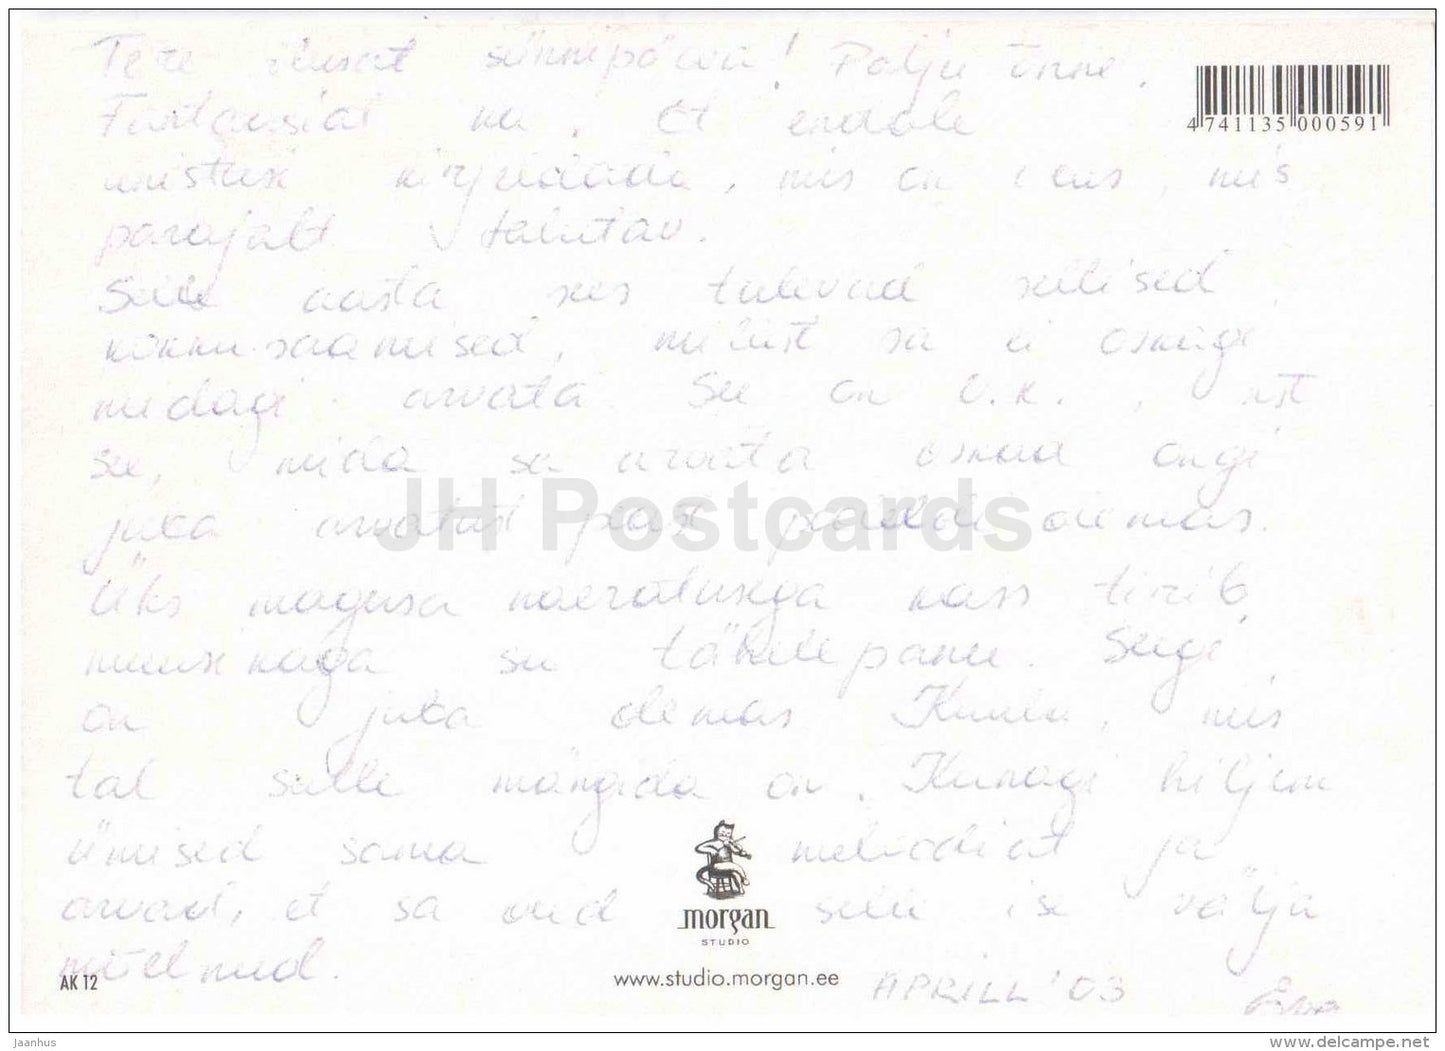 Tere ilusat sünnipäeva! Palju õnne.
Fantaasiat ka, et endale
unistusi kirjeldada, mis on ees, mis
parajalt talutav.
Selle aasta sees tulevad sellised
kokkusaamised, millist sa ei oskagi
midagi arvata. See on O.K., sest
see, mida sa arvata oskad ongi
juba arvatust peast olemas.
Üks magusa naeratusega kass tirib
muusikaga su tähelepanu. Seegi
on juba olemas Kuula, mis
tal sulle mängida on. Kunagi hiljem
ümised sama melodiat ja
arvad, et sa oled selle ise välja
mõelnud.
4 741135 000591
JH Postcards
morgan
STUDIO
AK 12
www.studio.morgan.ee
APRILL '03
jaanhus
www.delcampe.net